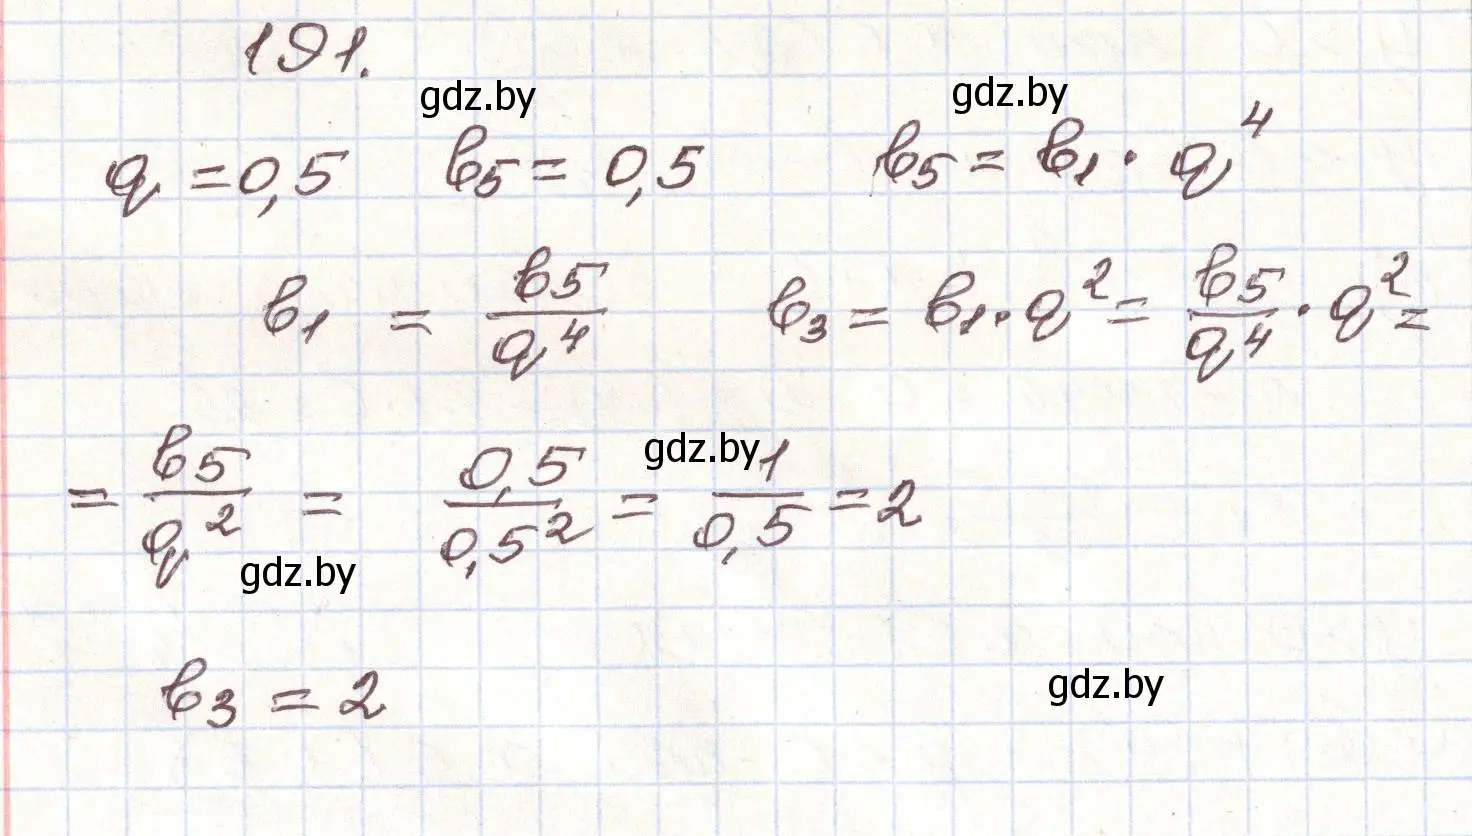 191.
gdz.by gdz.by
q = 0,5 b₅ = 0,5 b₅ = b₁ · q⁴
b₁ = b₅/q⁴ b₃ = b₁ · q² = b₅/q⁴ · q² =
= b₅/q² = 0,5/0,5² = 1/0,5 = 2
gdz.by
gdz.by
b₃ = 2
gdz.by